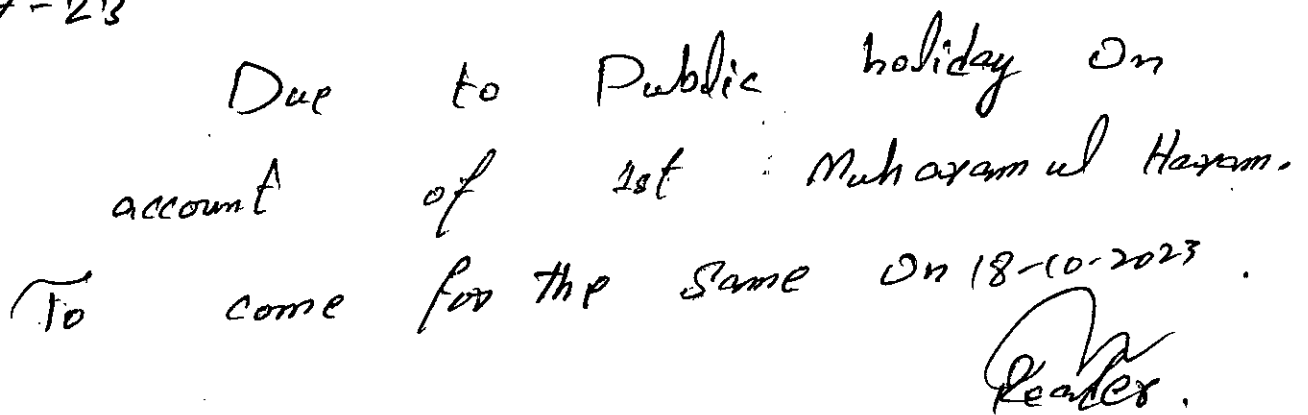 7-23
Due to Public holiday on
account of 1st Muharam ul Haram.
To come for the same on 18-10-2023.
Reader.